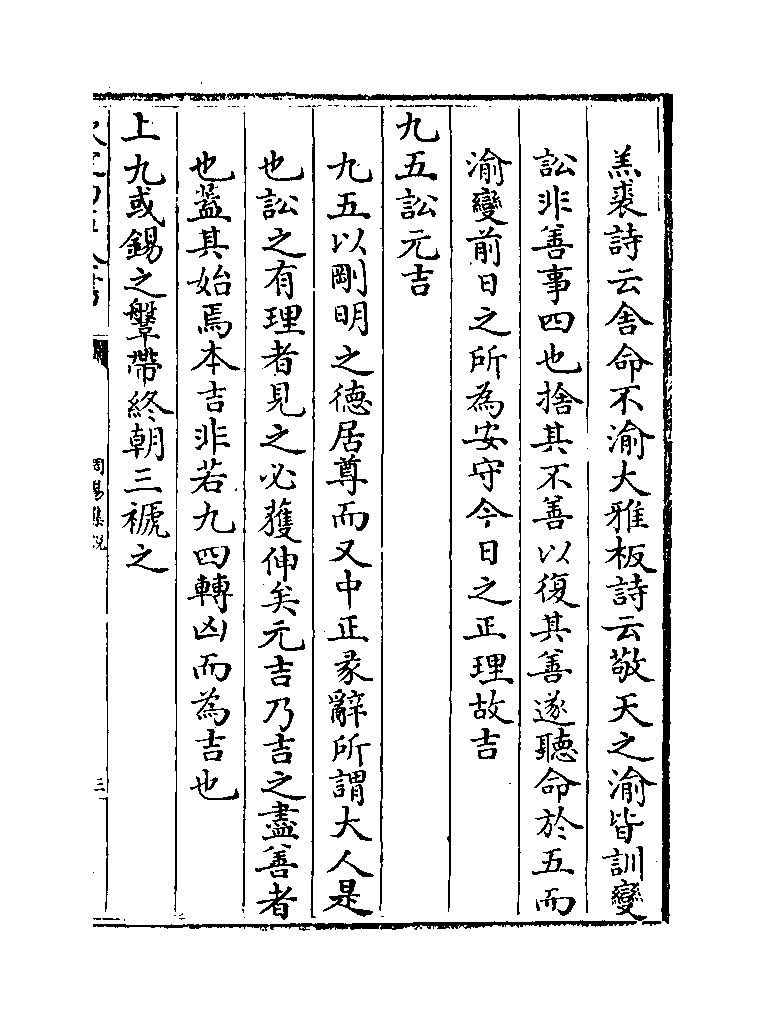 羔裘詩云舍命不渝大雅板詩云敬天之渝皆訓變
訟非善事四也捨其不善以復其善遂聽命於五而
渝變前日之所為安守今日之正理故吉
九五訟元吉
九五以剛明之德居尊而又中正彖辭所謂大人是
也訟之有理者見之必獲伸矣元吉乃吉之盡善者
也蓋其始焉本吉非若九四轉凶而為吉也
上九或錫之鞶帶終朝三褫之
周易集說
三